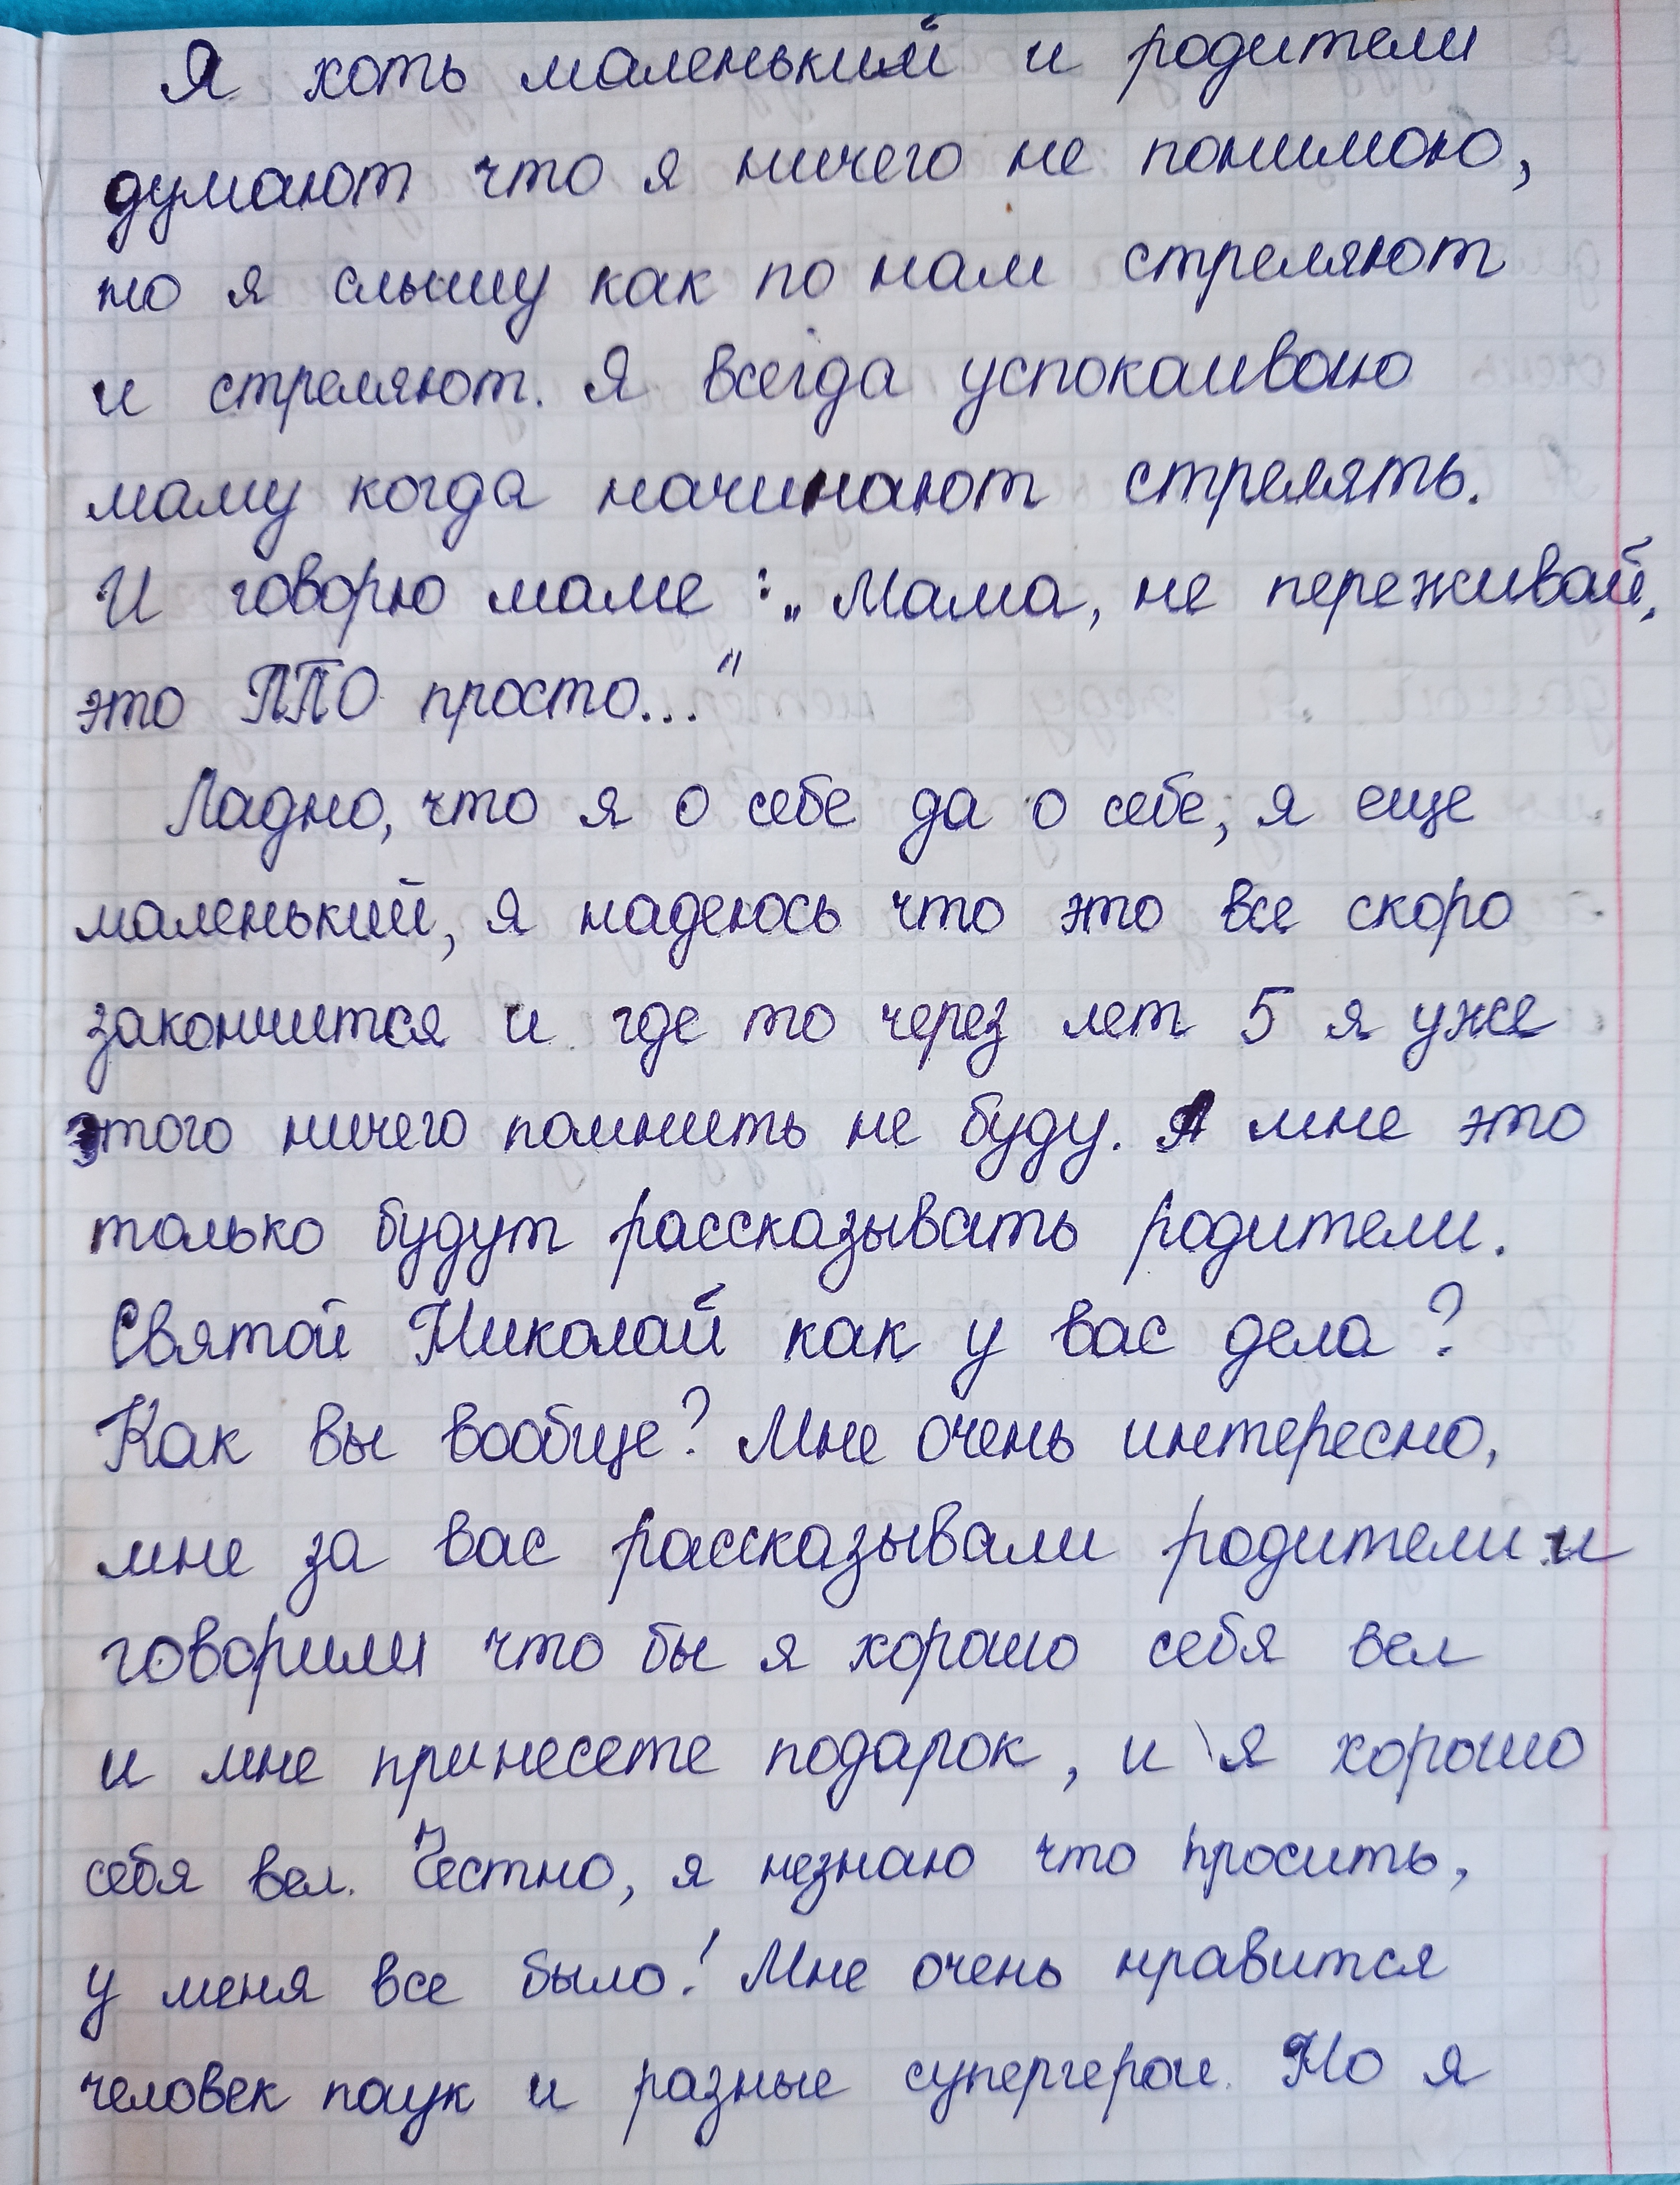 Я хоть маленький и родители
думают что я ничего не понимаю,
но я слышу как по нам стреляют
и стреляют. Я всегда успокаиваю
маму когда начинают стрелять.
И говорю маме :„ Мама, не переживай,
это ППО просто..."
Ладно, что я о себе да о себе, я еще
маленький, я надеюсь что это все скоро
закончится и где то через лет 5 я уже
этого ничего помнить не буду. А мне это
только будут рассказывать родители.
Святой Николай как у вас дела?
Как вы вообще? Мне очень интересно,
мне за вас рассказывали родители и
говорили что бы я хорошо себя вел
и мне принесете подарок, и я хорошо
себя вел. Честно, я незнаю что просить,
у меня все было! Мне очень нравится
человек паук и разные супергерои. Но я